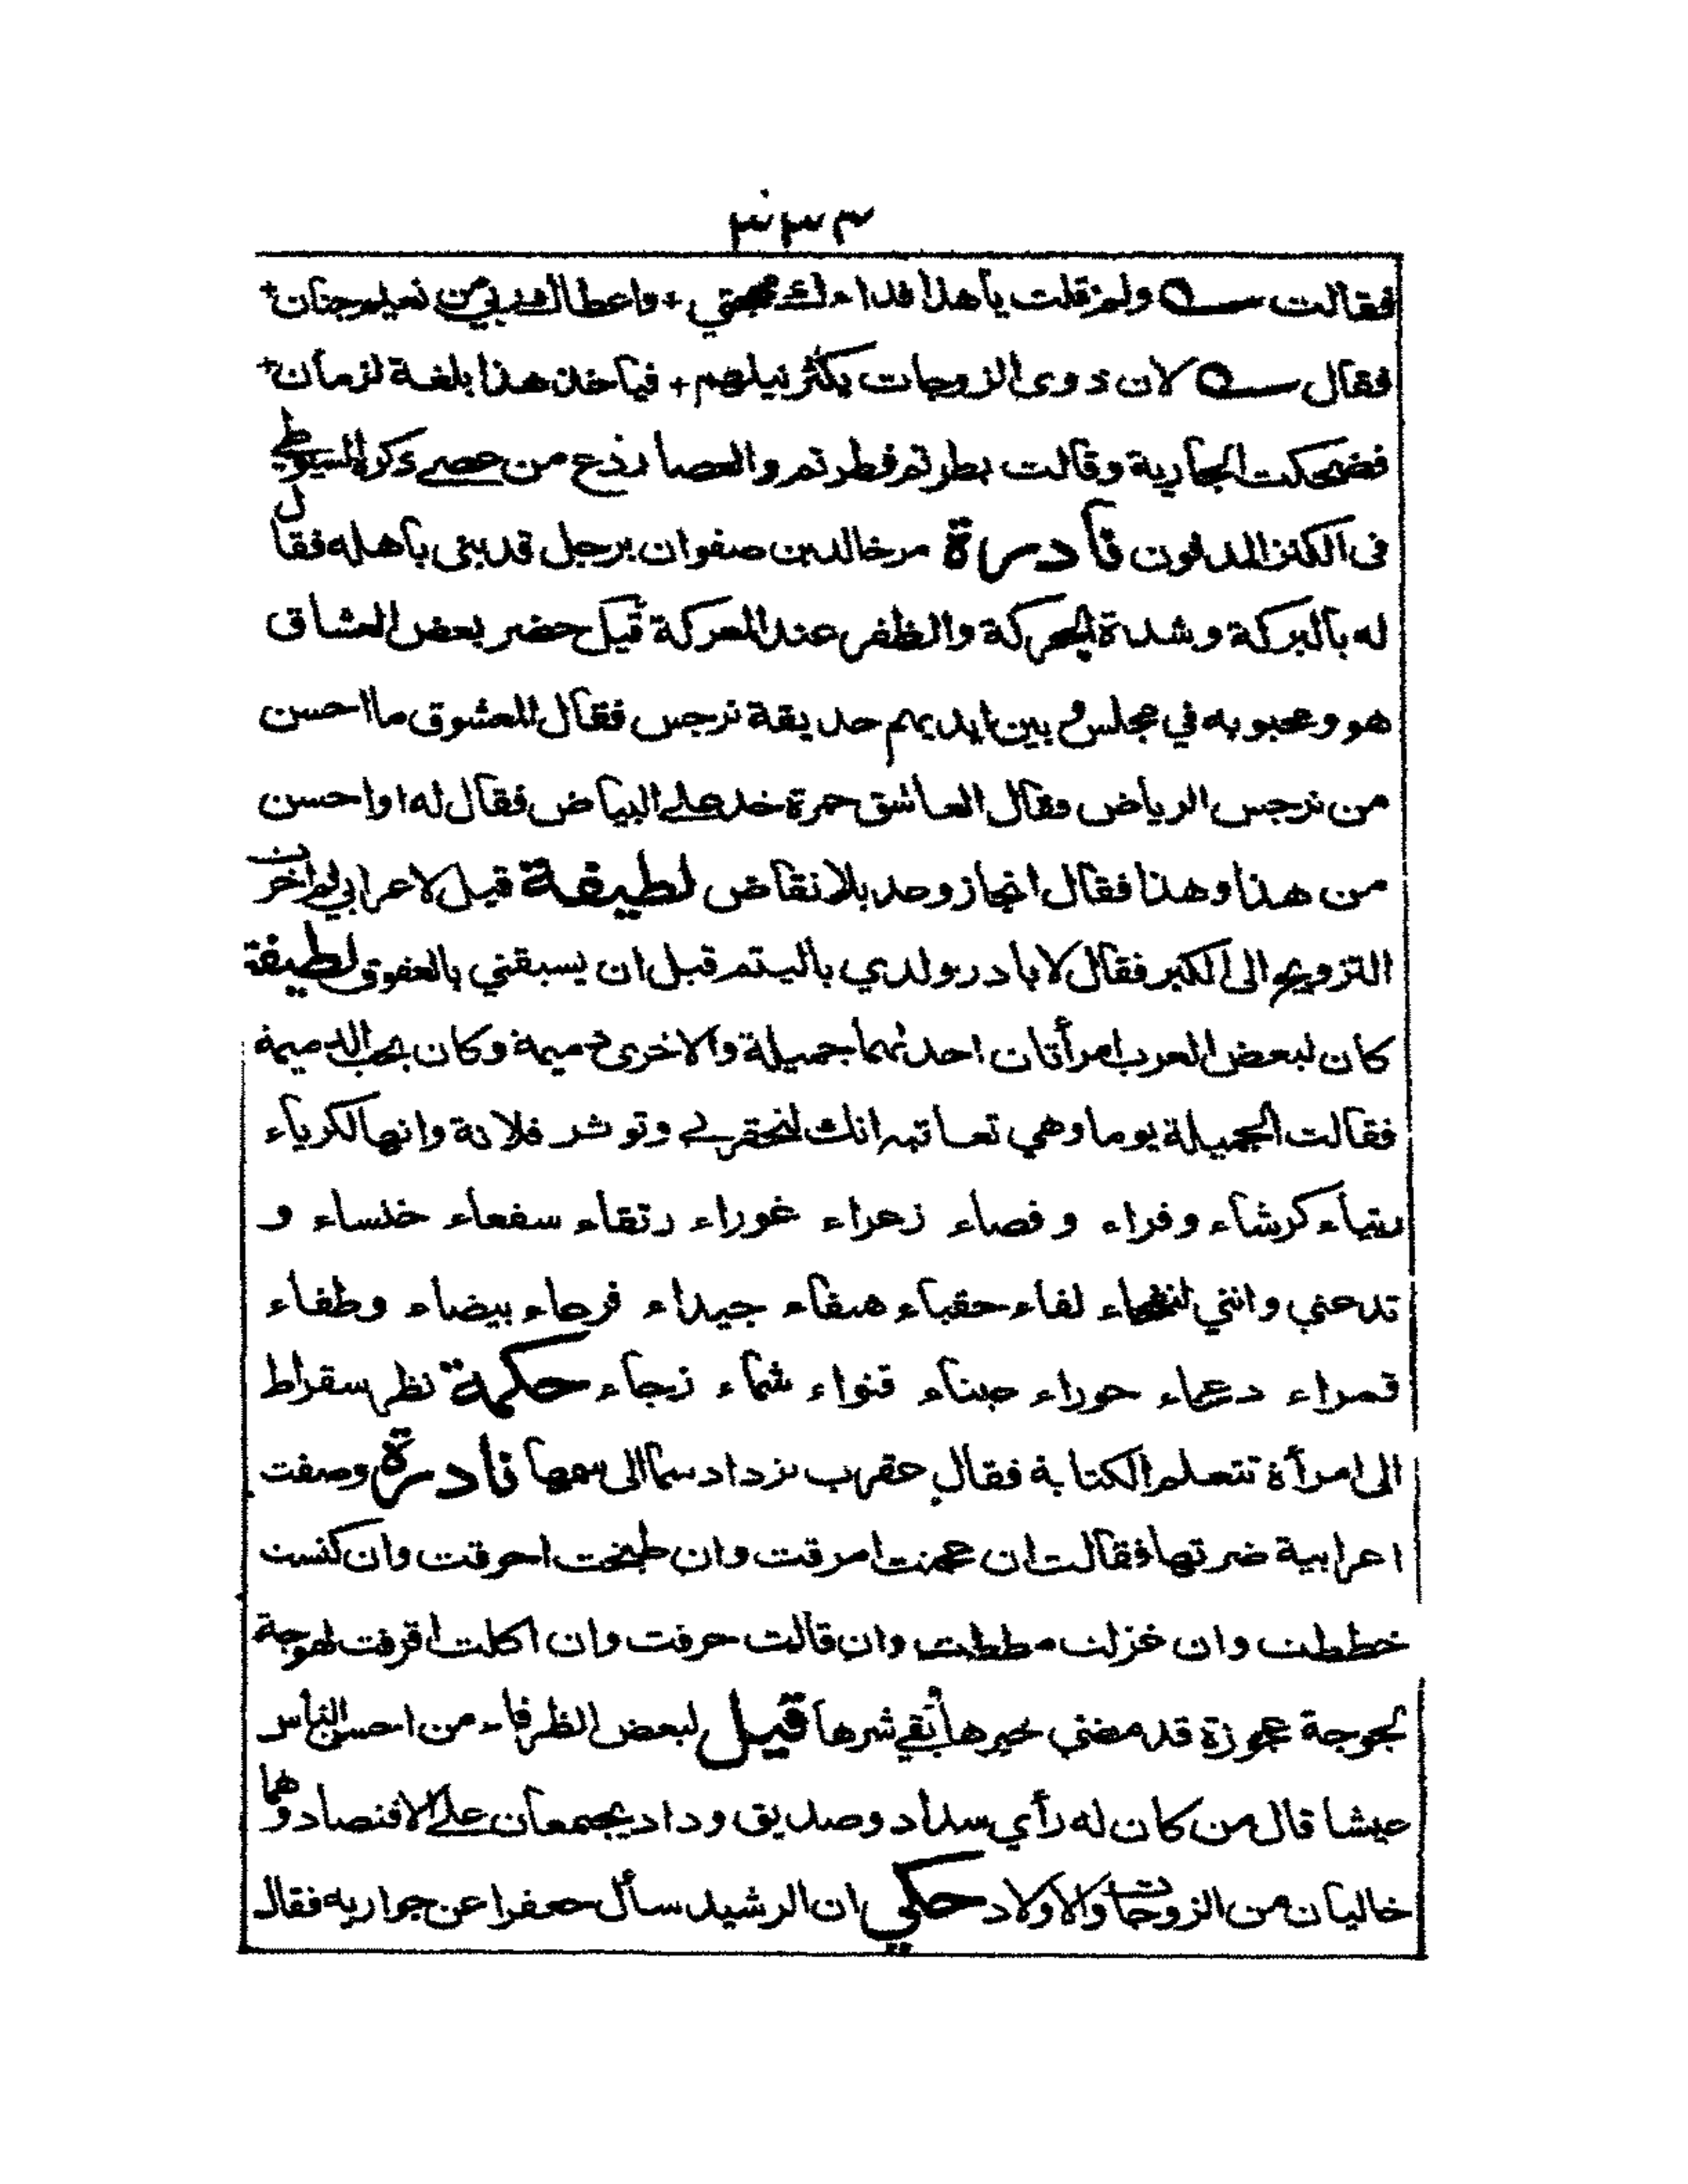 ٣٣٣
فقالت ولم قلت يا هذا فداءك مهجتي + واعطاك ربي من نعيم جنان +
فقال لان ذوى الزوجات يكثر نيلهم + فيا خذ هذا بلغة لزمان +
فضحكت الجارية وقالت بطرتم فطرتم والعصا زذع من عصے ذكره السيوطي
فى الكنز المدفون نادرة مر خالد بن صفوان برجل قد بنى باهله فقال
له بالبركة وشدة الحركة والظفر عند المعركة قيل حضر بعض العشاق
هو ومحبوبه في مجلس و بين ايديهم حديقة نرجس فقال المعشوق ما احسن
من نرجس الرياض وقال العاشق حمرة خد على البياض فقال له او احسن
من هذا وهذا فقال انجاز وعد بلا نقاض لطيفة قيل لاعرابي لم اخرت
التزويج الى الكبر فقال لابادر ولدي باليتم قبل ان يسبقني بالعقوق لطيفة
كان لبعض العرب امرأتان احدىهما جميلة والاخرى ذميمة وكان يحب الدميمة
فقالت الجميلة يوما وهي تعاتبه انك لتحقرني وتوثر فلانة وانها لكرياء
رتياء كرشاء وفراء وفصاء زعراء غوراء رتقاء سفعاء خنساء و
تدعني وانني لنفجاء لفاء حقباء هيفاء جيداء فرعاء بيضاء وطفاء
قمراء دعجاء حوراء عيناء قنواء شماء زجاء حكمة نظر سقراط
الى امرأة تتعلم الكتابة فقال عقرب تزداد سما الى سمها نادرة وصفت
اعرابية ضرتها فقالت ان عجنت امرقت وان طبخت احرقت وان كنست
خططت وان غزلت مططت وان قالت حرفت وان اكلت اقرفت لهوجة
لجوجة عجوزة قد مضى خيرها بقي شرها قيل لبعض الظرفاء من احسن الناس
عيشا قال من كان له رأي سداد وصديق وداد يجمعان على الاقتصاد وهما
خاليان من الزوجات والاولاد حكي ان الرشيد سأل جعفرا عن جواريه فقال